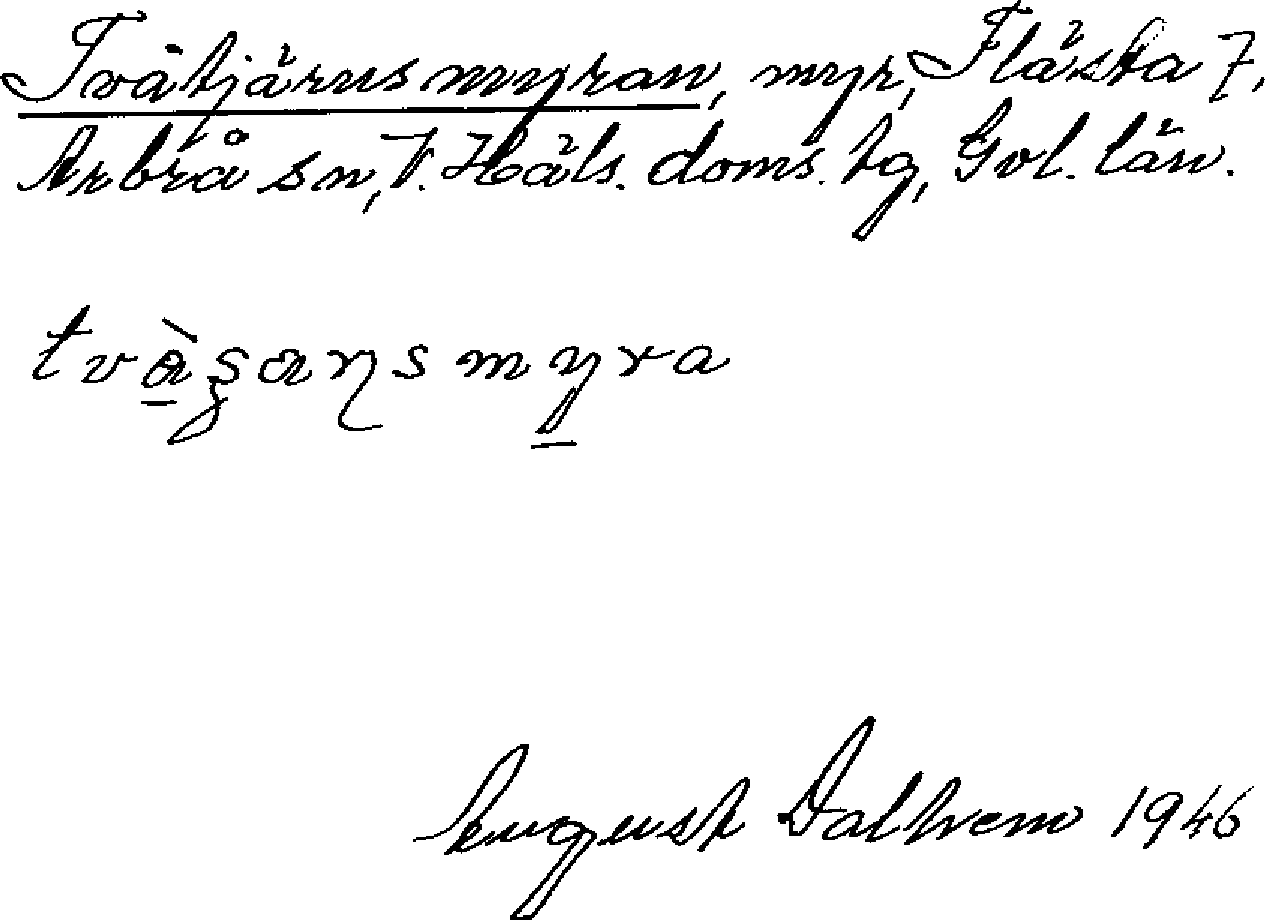 Tvåtjärnsmyran, myr, Flästa 7,
Arbrå sn, V. Häls. doms. tg, Gvl. län.
tvàʂaɳsmyra
August Dalhem 1946